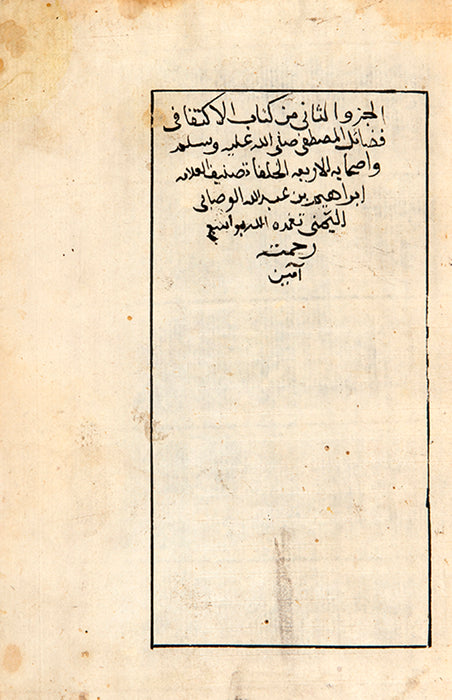 الجزو الثاني من كتاب الاكتفا في
فضائل المصطفى صلى الله عليه وسلم
واصحابه الاربعه الخلفا تصنيف العلامه
ابراهيم بن عبد الله الوصابي
اليمني تغمده الله بواسع
رحمته
آمين